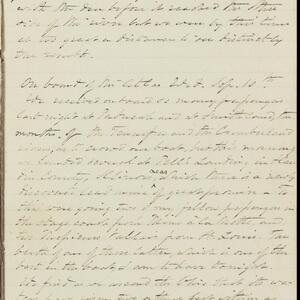 with the den before it reached the other
side of the river but we were by this time
at too great a distance to see distinctly
the result.
On board of the Atlas Wed. Sep. 10th
We received on board so many passengers
last night at Paducah and at Smithland, the
mouths of the Tennessee and the Cumberland
rivers, as to crowd our boat, but this morning
we landed several at Sell's Landing, in Har
din County, Illinois, near which there is a newly
discovered lead mine of great promise. To
this were going two of my fellow passengers in
the stage coach from Peru à la Salle and
berth of one of these latter, which is one of the
best in the boat, I am to have tonight.
We find as we ascend the Ohio that the wa-